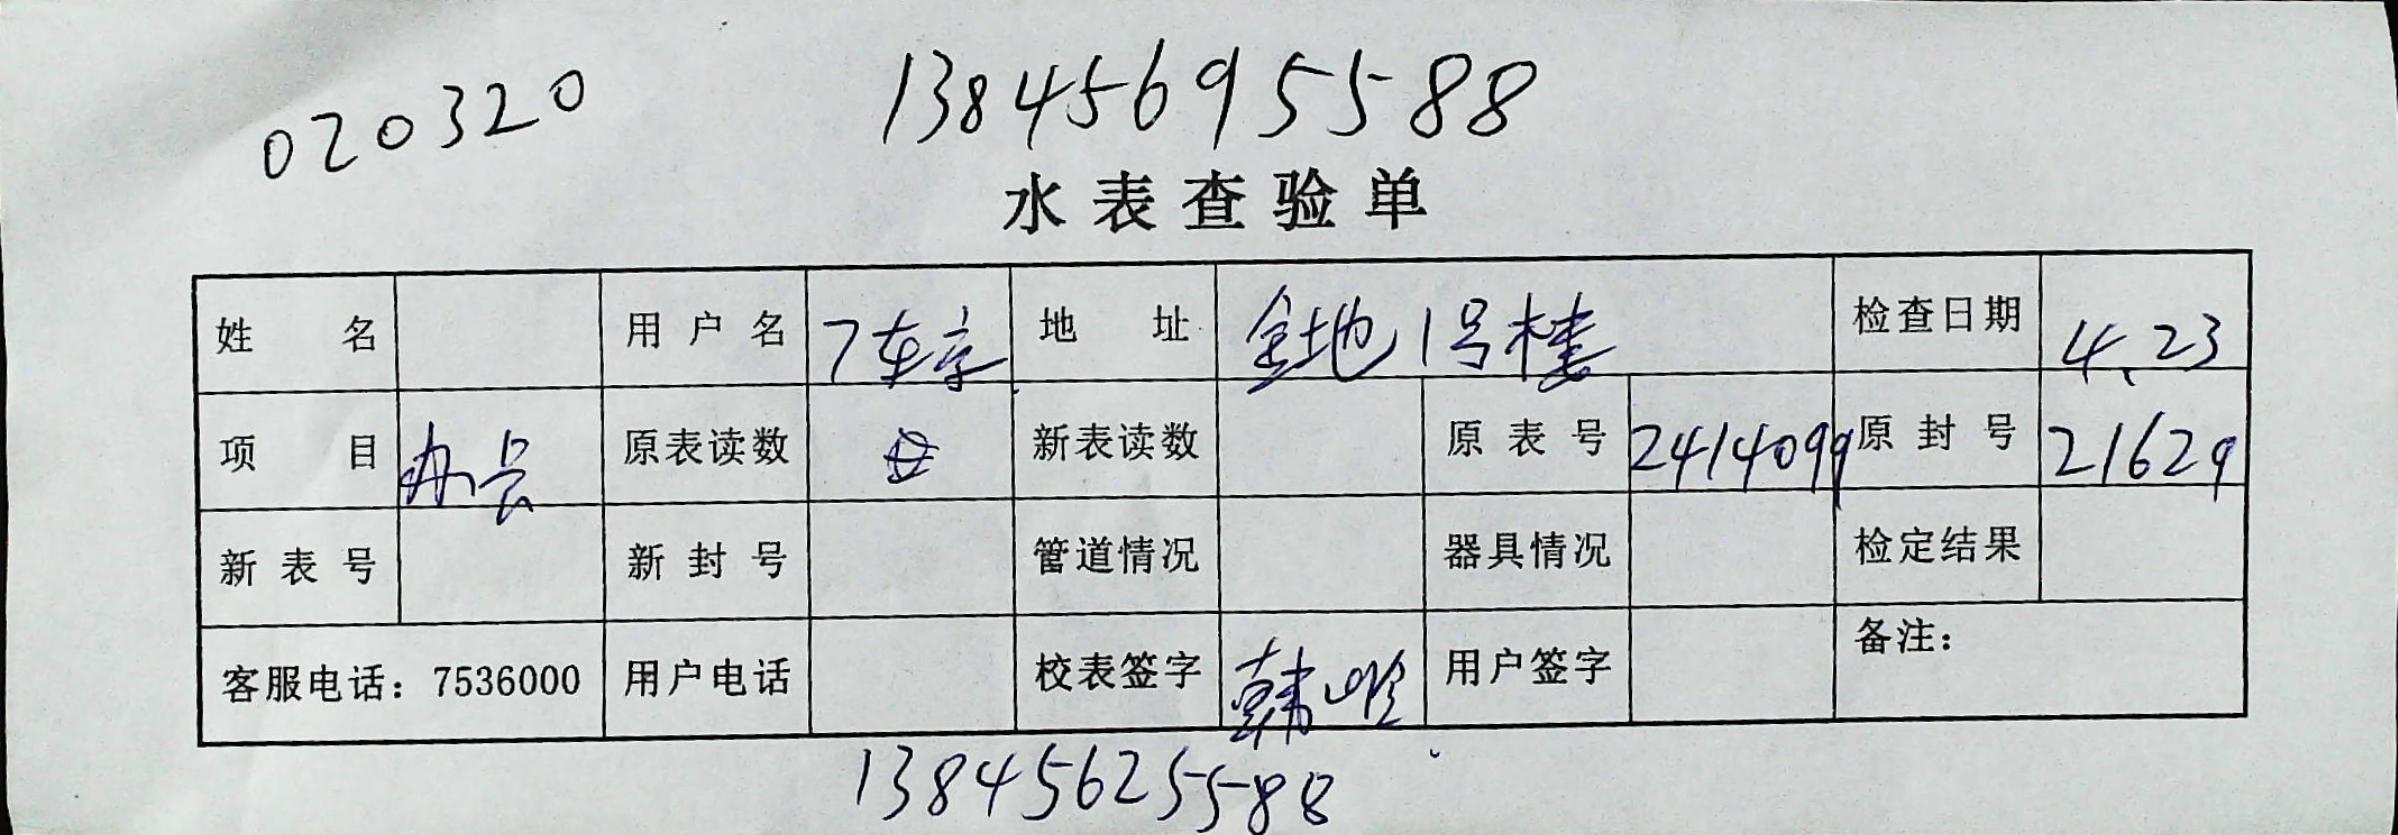 020320 13845695588
水表查验单
姓名 用户名 7车字 地址 金地1号楼 检查日期 4.23
项目 原表读数 新表读数 原表号 2414099 原封号 21629
新表号 新封号 管道情况 器具情况 检定结果
客服电话：7536000 用户电话 校表签字 韩 用户签字 备注：
13845625588